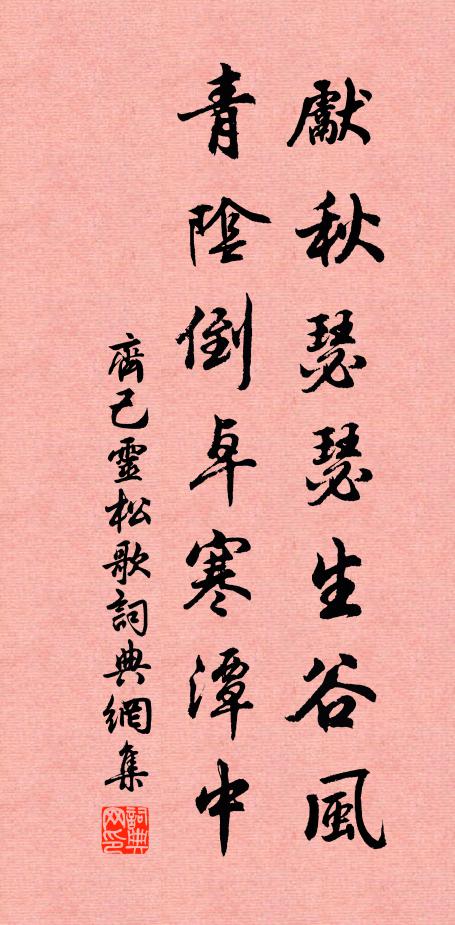 獻秋瑟瑟生谷風
青陰倒卓寒潭中
齊己靈松歌詞典網集
詞典
网印